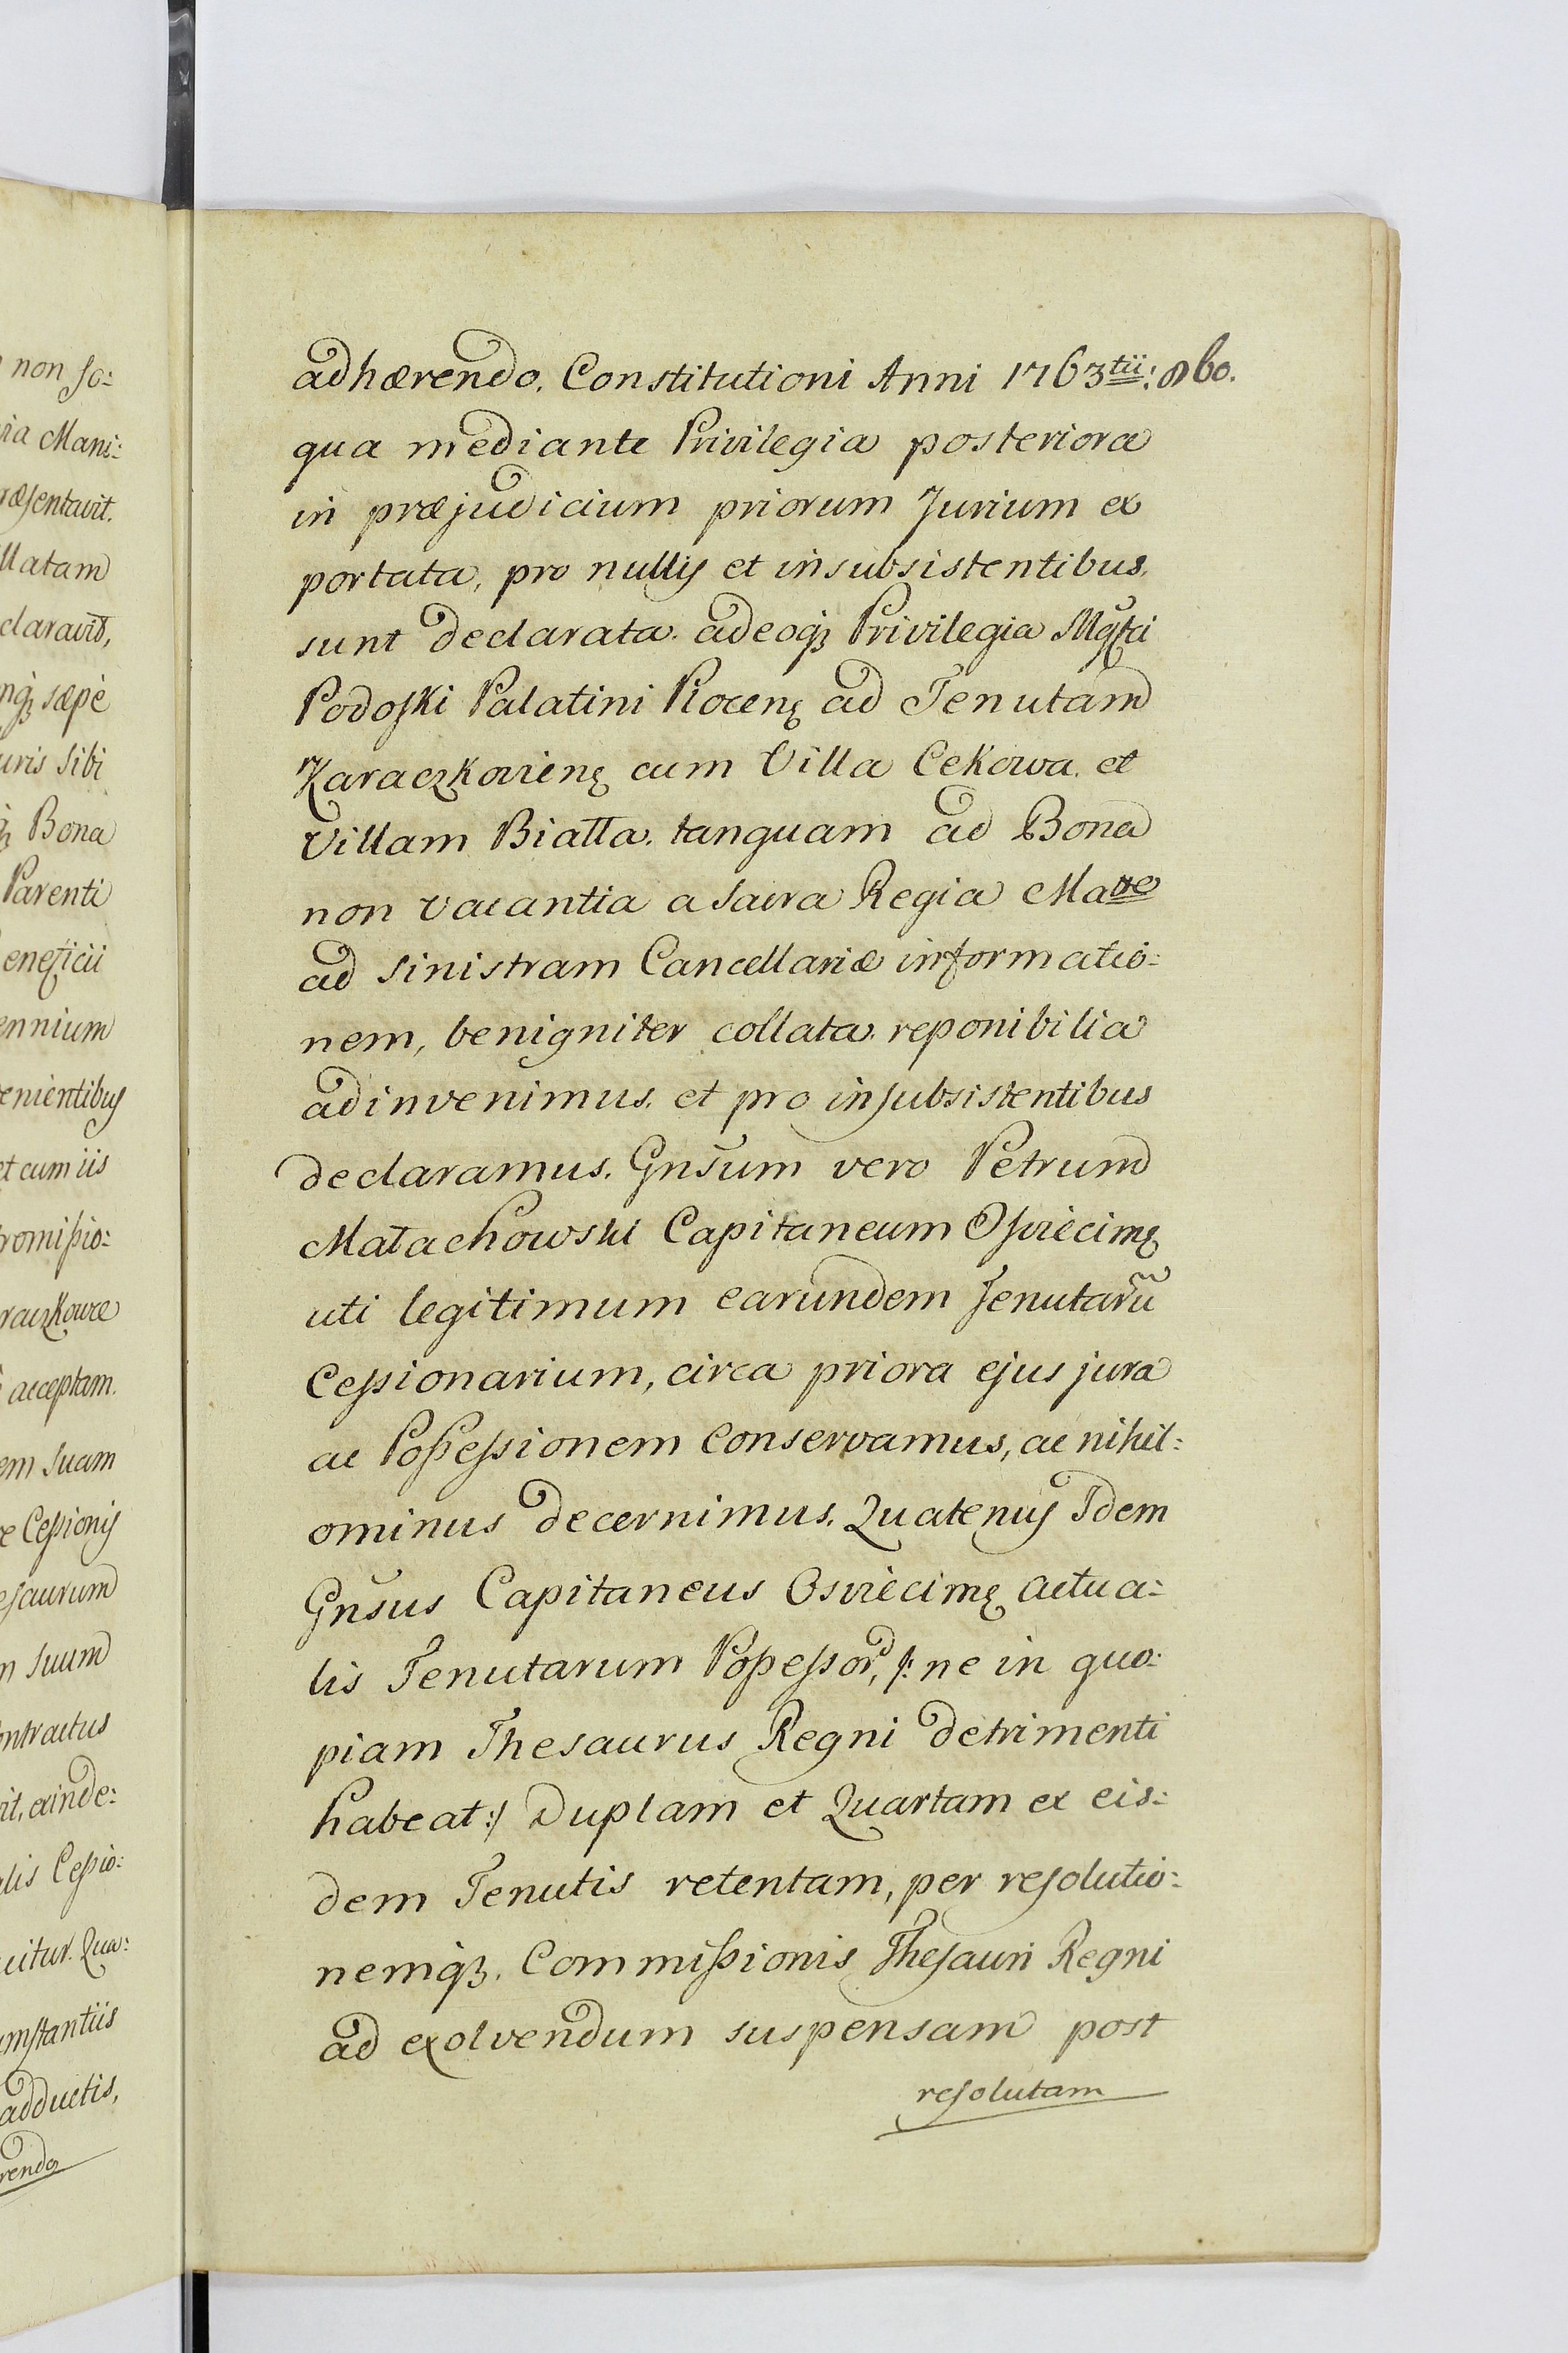 non so:
Mani:
ræsentavit.
llatam
claravit,
nq₃ sæpè
uris sibi
Bona
Parenti
eneficii
ennium
enientibus
et cum iis
romissio:
raczkowce
acceptam.
em suam
Cessionis
esaurum
suum
ontractus
it, exinde:
lis Cessio:
uitur. Qua:
umstantiis
adductis,
rendo
adhærendo. Constitutioni Anni 1763tii:
60.
qua mediante Privilegia posteriora
in præjudicium priorum Jurium ex
portata, pro nullis et insubsistentibus,
sunt declarata. adeoq₃ Privilegia Mgfci
Podoski Palatini Plocens ad Tenutam
Karaczkoviens cum Villa Cekowa. et
Villam Biatta. tanquam ad Bona
non vacantia a Sacra Regia Matte
ad sinistram Cancellariæ informatio:
nem, benigniter collata. reponibilia
adinvenimus. et pro insubsistentibus
declaramus. Gnsum vero Petrum
Małachowski Capitaneum Osviecims
uti legitimum earundem Tenutarũ
Cessionarium, circa priora ejus jura
ac Possessionem conservamus, ac nihil:
ominus decernimus. Quatenus Idem
Gnsus Capitaneus Osviecims actua:
lis Tenutarum Possessor, /: ne in quo:
piam Thesaurus Regni detrimenti
habeat :/ Duplam et Quartam ex eis:
dem Tenutis retentam, per resolutio:
nemq₃. Commissionis Thesauri Regni
ad exolvendum suspensam post
resolutam